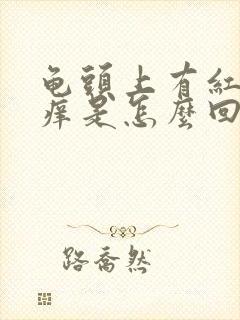 龟頭上有紅
痒是怎麼回
路喬然